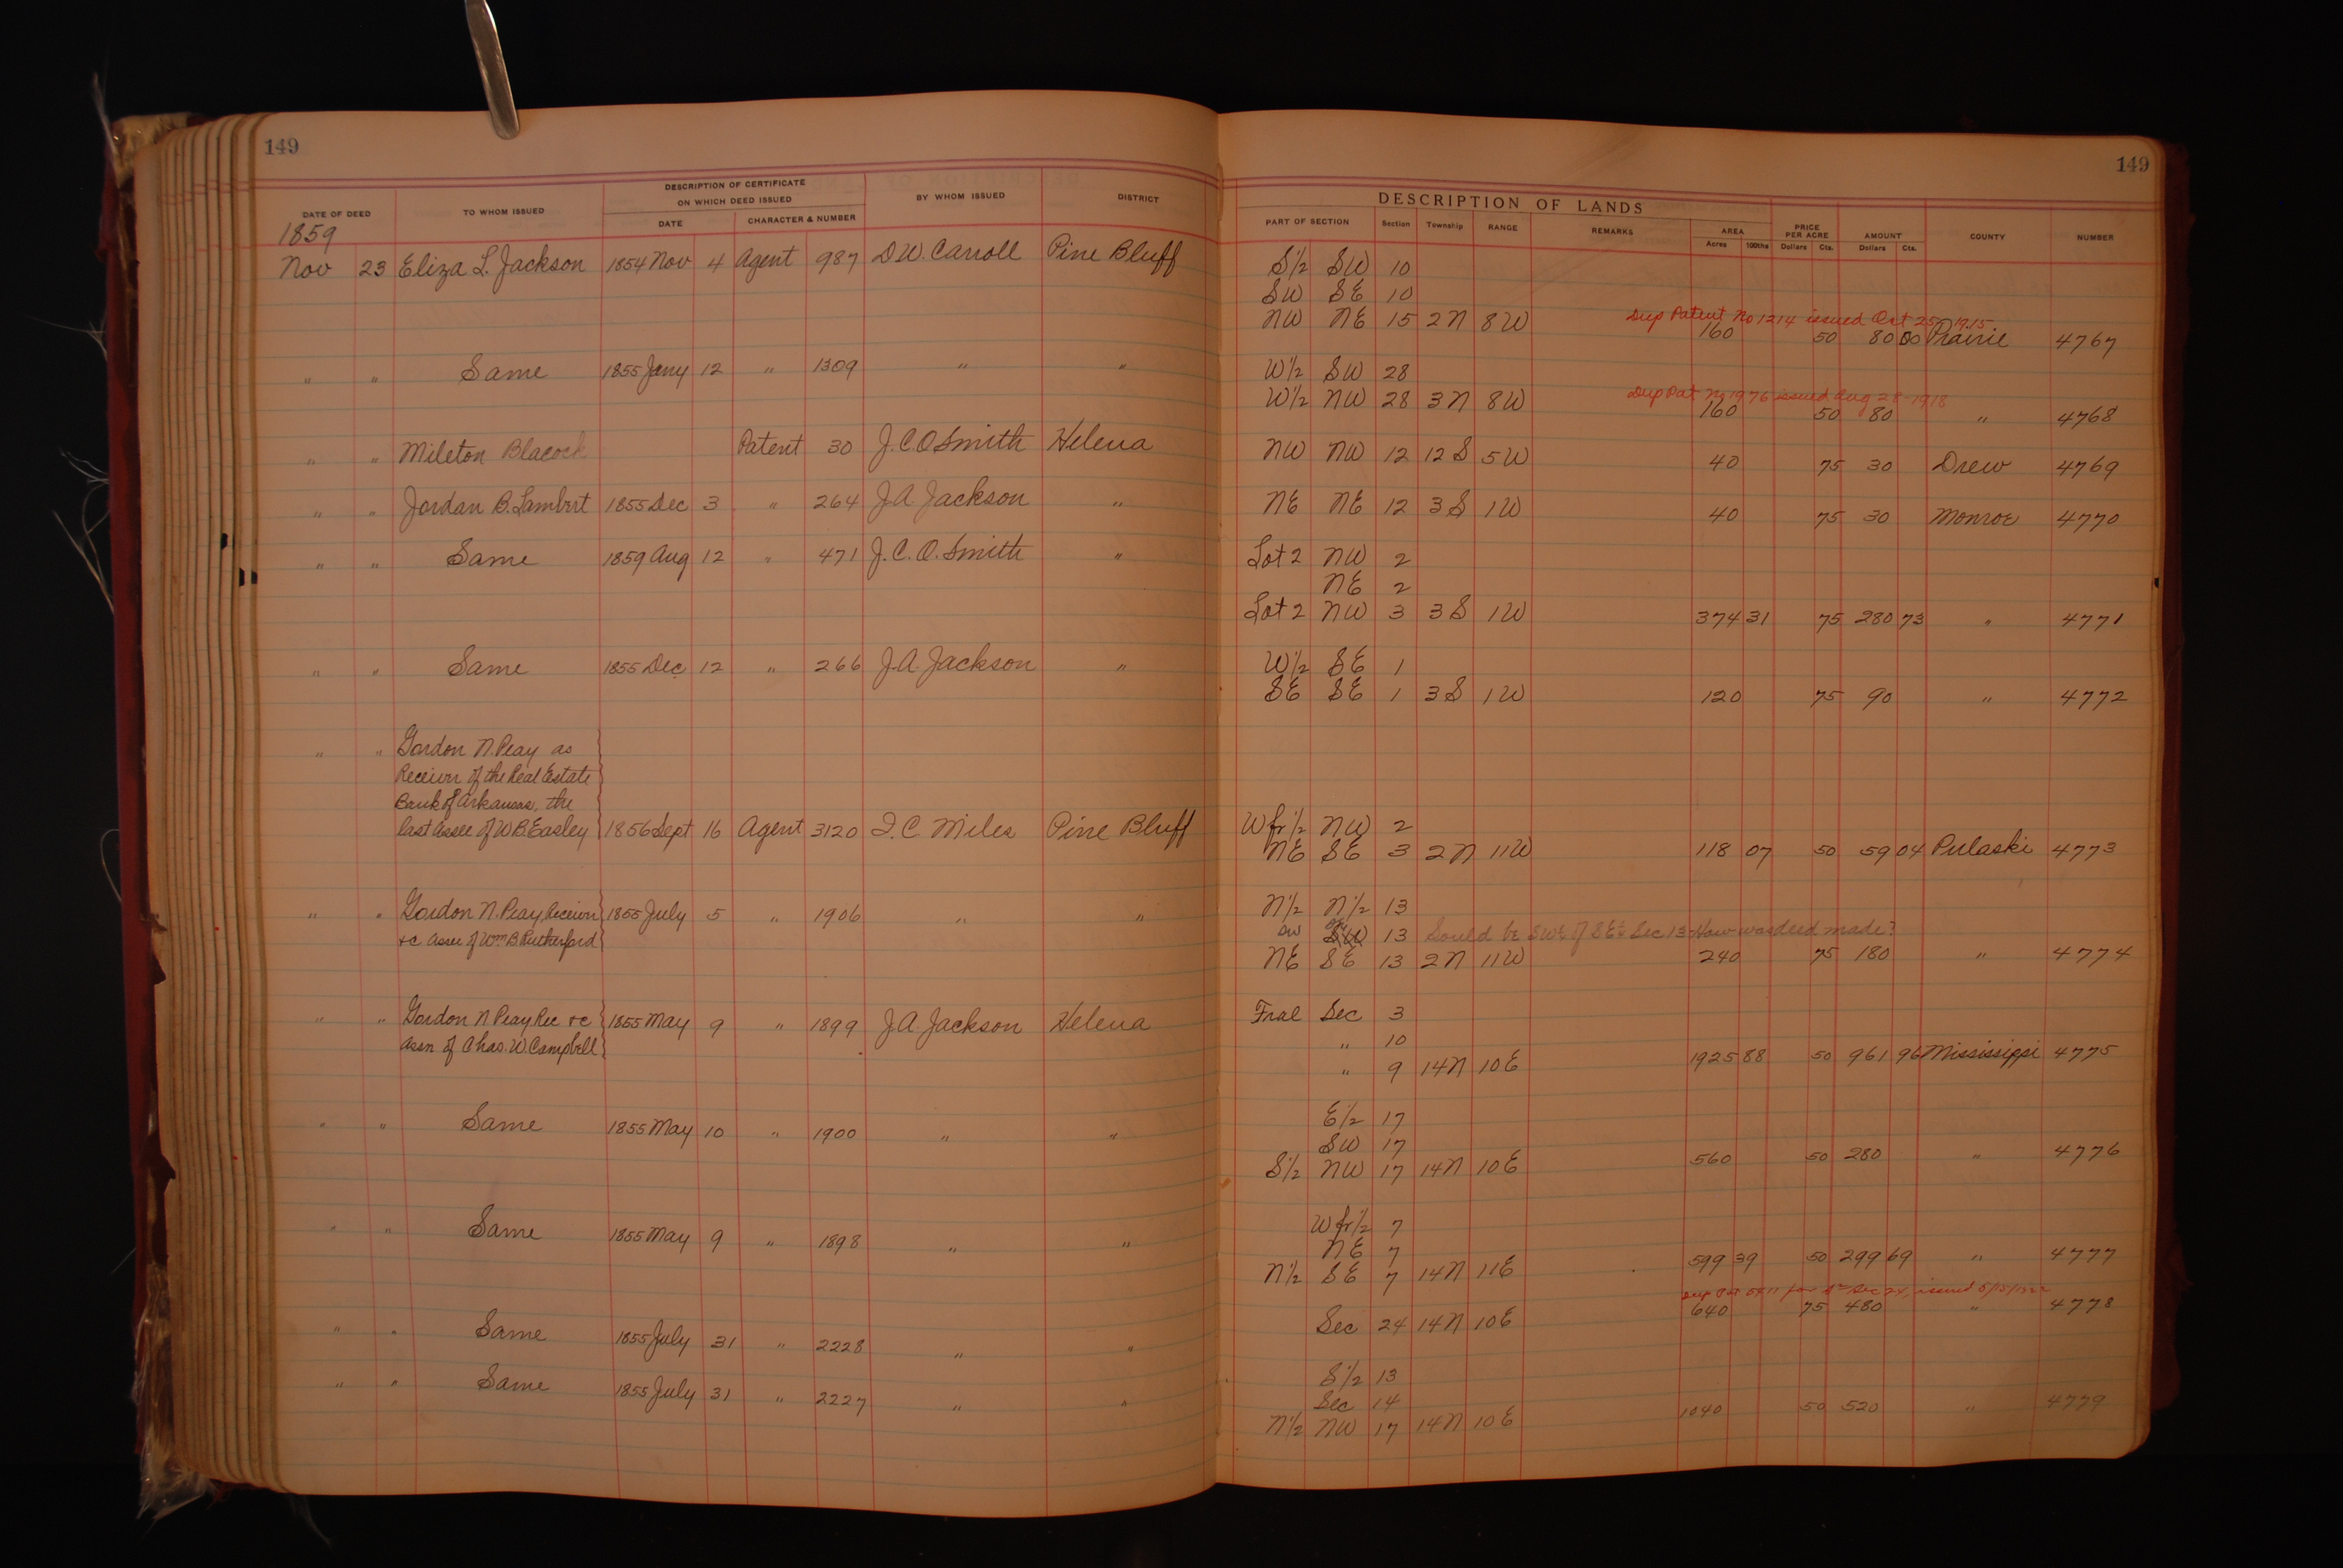 149
149
DATE OF DEED TO WHOM ISSUED DESCRIPTION OF CERTIFICATE ON WHICH DEED ISSUED BY WHOM ISSUED DISTRICT
DATE CHARACTER & NUMBER
DESCRIPTION OF LANDS
PART OF SECTION Section Township RANGE REMARKS AREA PRICE PER ACRE AMOUNT COUNTY NUMBER
Acres 100ths Dollars Cts. Dollars Cts.
1859
Nov 23 Eliza L. Jackson 1854 Nov 4 Agent 987 D W. Carroll Pine Bluff S½ SW 10
SW SE 10
Dup Patent No 1214 issued Oct 25, 1915
NW NE 15 2N 8W 160 50 80 00 Prairie 4767
" " Same 1855 Jany 12 " 1309 " " W½ SW 28
Dup Pat No 1976 issued Aug 28-1918
W½ NW 28 3N 8W 160 50 80 " 4768
" " Mileton Blacock Patent 30 J.C.O Smith Helena NW NW 12 12S 5W 40 75 30 Drew 4769
" " Jordan B. Lambert 1855 Dec 3 " 264 J.A. Jackson " NE NE 12 3S 1W 40 75 30 Monroe 4770
" " Same 1859 Aug 12 " 471 J.C.O. Smith " Lot 2 NW 2
NE 2
Lot 2 NW 3 3S 1W 374 31 75 280 73 " 4771
" " Same 1855 Dec 12 " 266 J.A. Jackson " W½ SE 1
SE SE 1 3S 1W 120 75 90 " 4772
" " Gordon N. Peay as
Receiver of the Real Estate
Bank of Arkansas, the
last assee of W B. Easley 1856 Sept 16 Agent 3120 I. C Miles Pine Bluff W fr½ NW 2
NE SE 3 2N 11W 118 07 50 59 04 Pulaski 4773
" " Gordon N. Peay, Receiver 1855 July 5 " 1906 " " N½ N½ 13
&c assee of Wm B Rutherford SW SE SW 13 Sould be SW¼ of SE¼ Sec 13 How was deed made?
NE SE 13 2N 11W 240 75 180 " 4774
" " Gordon N Peay Rec &c 1855 May 9 " 1899 J.A. Jackson Helena Fral Sec 3
assn of Chas. W. Campbell " 10
" 9 14N 10E 1925 88 50 961 96 Mississippi 4775
" " Same 1855 May 10 " 1900 " " E½ 17
SW 17
S½ NW 17 14N 10E 560 50 280 " 4776
" " Same 1855 May 9 " 1898 " " W fr½ 7
NE 7
N½ SE 7 14N 11E 599 39 50 299 69 " 4777
Dup Pat for Sec 24, issued
" " Same 1855 July 31 " 2228 " " Sec 24 14N 10E 640 75 480 " 4778
" " Same 1855 July 31 " 2227 " " S½ 13
Sec 14
N½ NW 17 14N 10E 1040 50 520 " 4779